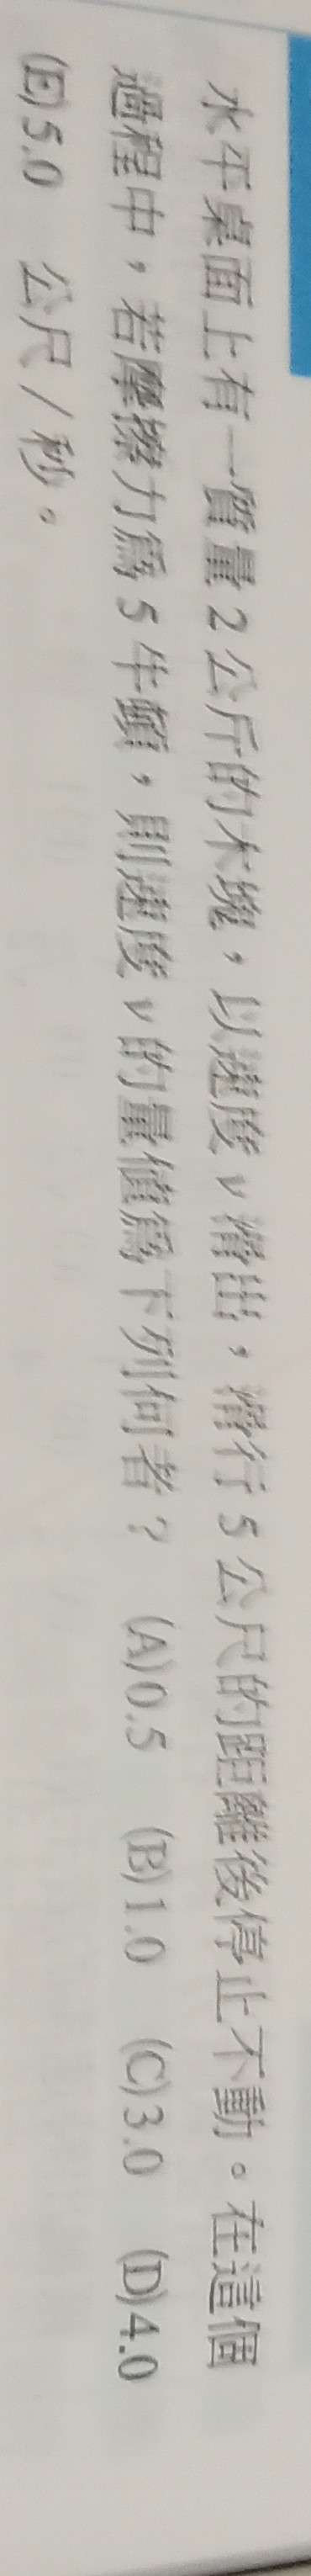 水平桌面上有一質量 2 公斤的木塊，以速度 v 滑出，滑行 5 公尺的距離後停止不動。在這個
過程中，若摩擦力為 5 牛頓，則速度 v 的量值為下列何者？ (A)0.5 (B)1.0 (C)3.0 (D)4.0
(E)5.0 公尺／秒。